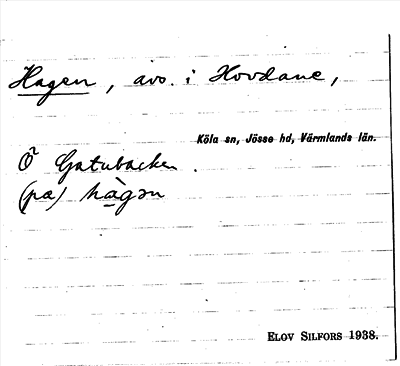 Hagen, avs. i Hovdane,
Köla sn, Jösse hd, Värmlands län.
Ö Gatubacken.
(pa) hàgən
ELOV SILFORS 1938.